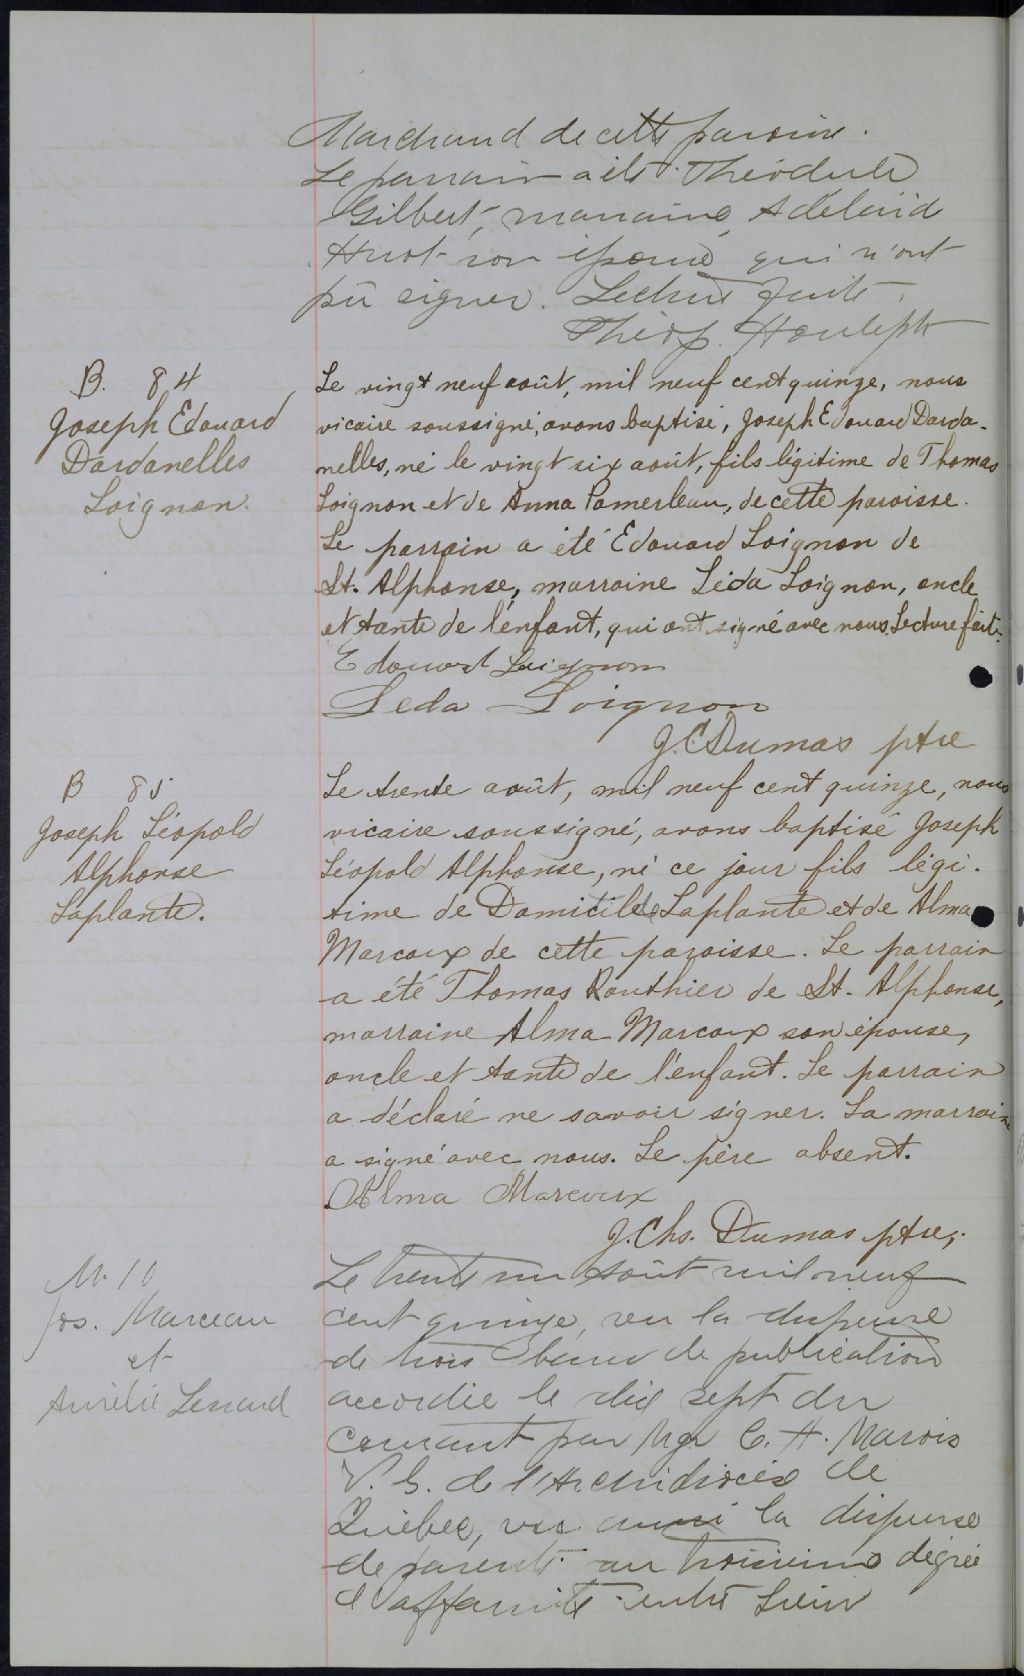 Marchand de cette paroisse.
Le parrain a été Théodule
Gilbert, marraine Adélaïd
Huot son épouse qui n'ont
pû signer. Lecture faite.
Théop. Houle ptr
B. 84
Joseph Edouard
Dardanelles
Loignon.
Le vingt neuf août, mil neuf cent quinze, nous
vicaire soussigné, avons baptisé, Joseph Edouard Darda-
nelles, né le vingt six août, fils légitime de Thomas
Loignon et de Anna Pomerleau, de cette paroisse.
Le parrain a été Edouard Loignon de
St. Alphonse, marraine Léda Loignon, oncle
et tante de l'enfant, qui ont signé avec nous. Lecture faite.
Edouard Loignon
Leda Loignon
J.C. Dumas ptre
B 85
Joseph Léopold
Alphonse
Laplante.
Le trente août, mil neuf cent quinze, nous
vicaire soussigné, avons baptisé Joseph
Léopold Alphonse, né ce jour fils légi-
time de Domicile Laplante et de Alma
Marcoux de cette paroisse. Le parrain
a été Thomas Routhier de St. Alphonse,
marraine Alma Marcoux son épouse,
oncle et tante de l'enfant. Le parrain
a déclaré ne savoir signer. La marraine
a signé avec nous. Le père absent.
Alma Marcoux
J. Chs. Dumas ptre,
M. 10
Jos. Marceau
et
Aurélie Lessard
Le trente un août mil neuf
cent quinze, vu la dispense
de trois bans de publication
accordée le dix sept du
courant par Mgr C. H. Marois
V. G. de l'Archidiocèse de
Québec, vu aussi la dispense
de parenté au troisième dégrée
d'affinité entre Sieur